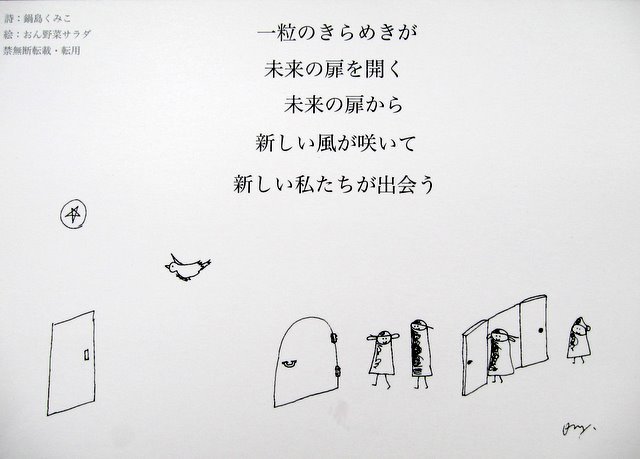 詩：鍋島くみこ
絵：おん野菜サラダ
禁無断転載・転用
一粒のきらめきが
未来の扉を開く
未来の扉から
新しい風が咲いて
新しい私たちが出会う